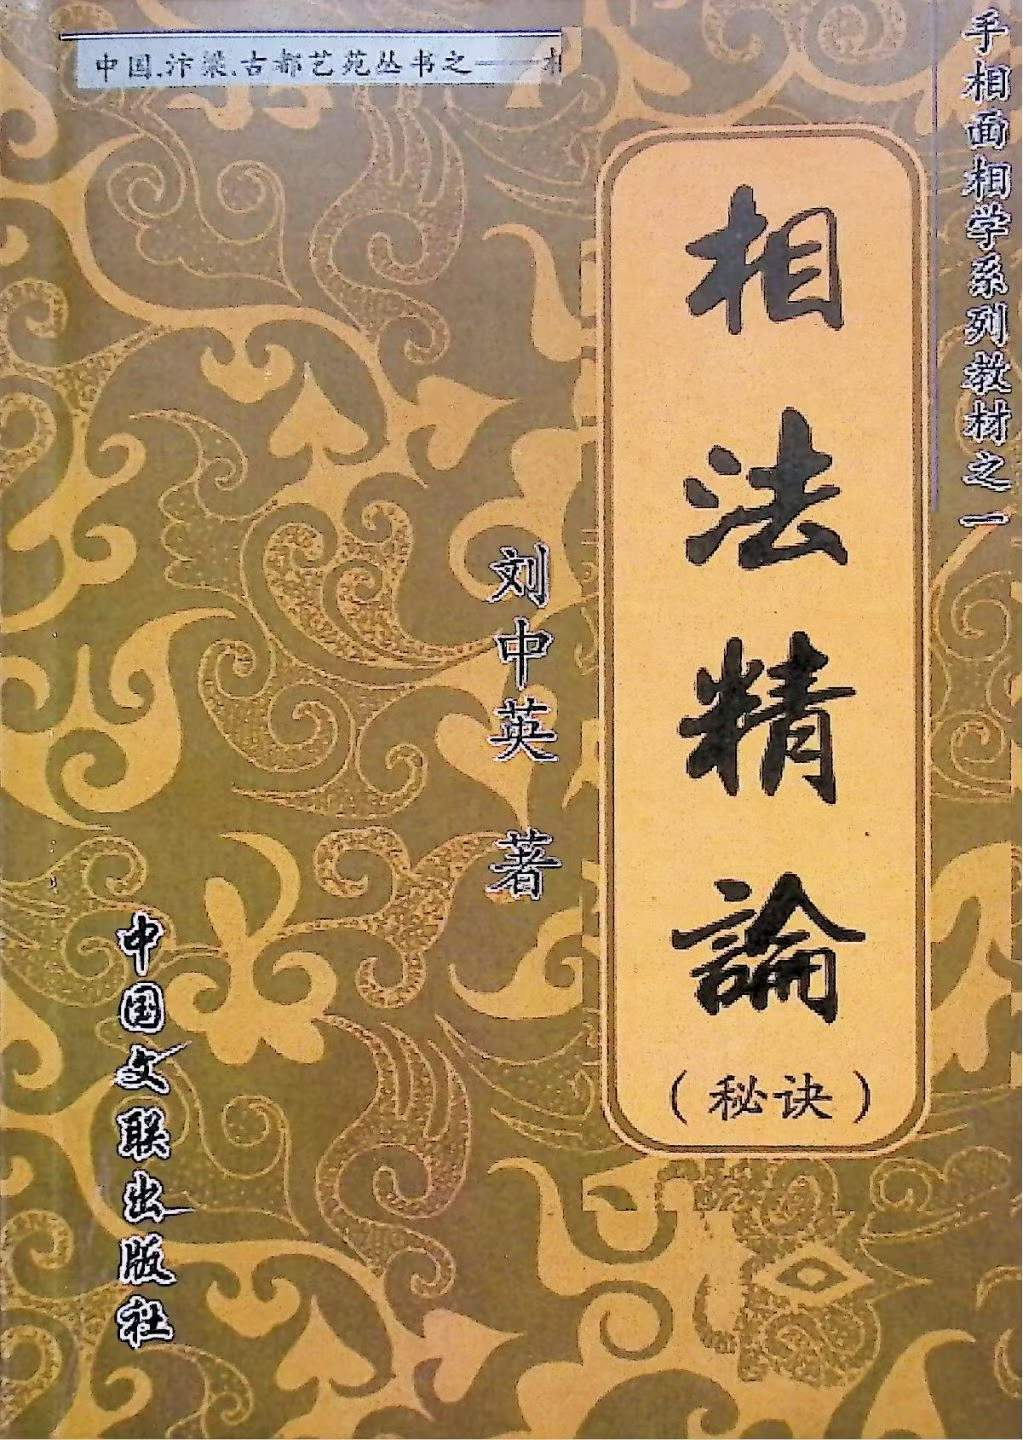 中国.汴梁.古都艺苑丛书之——
手相面相学系列教材之一
相法精論
（秘诀）
刘中英 著
中国文联出版社